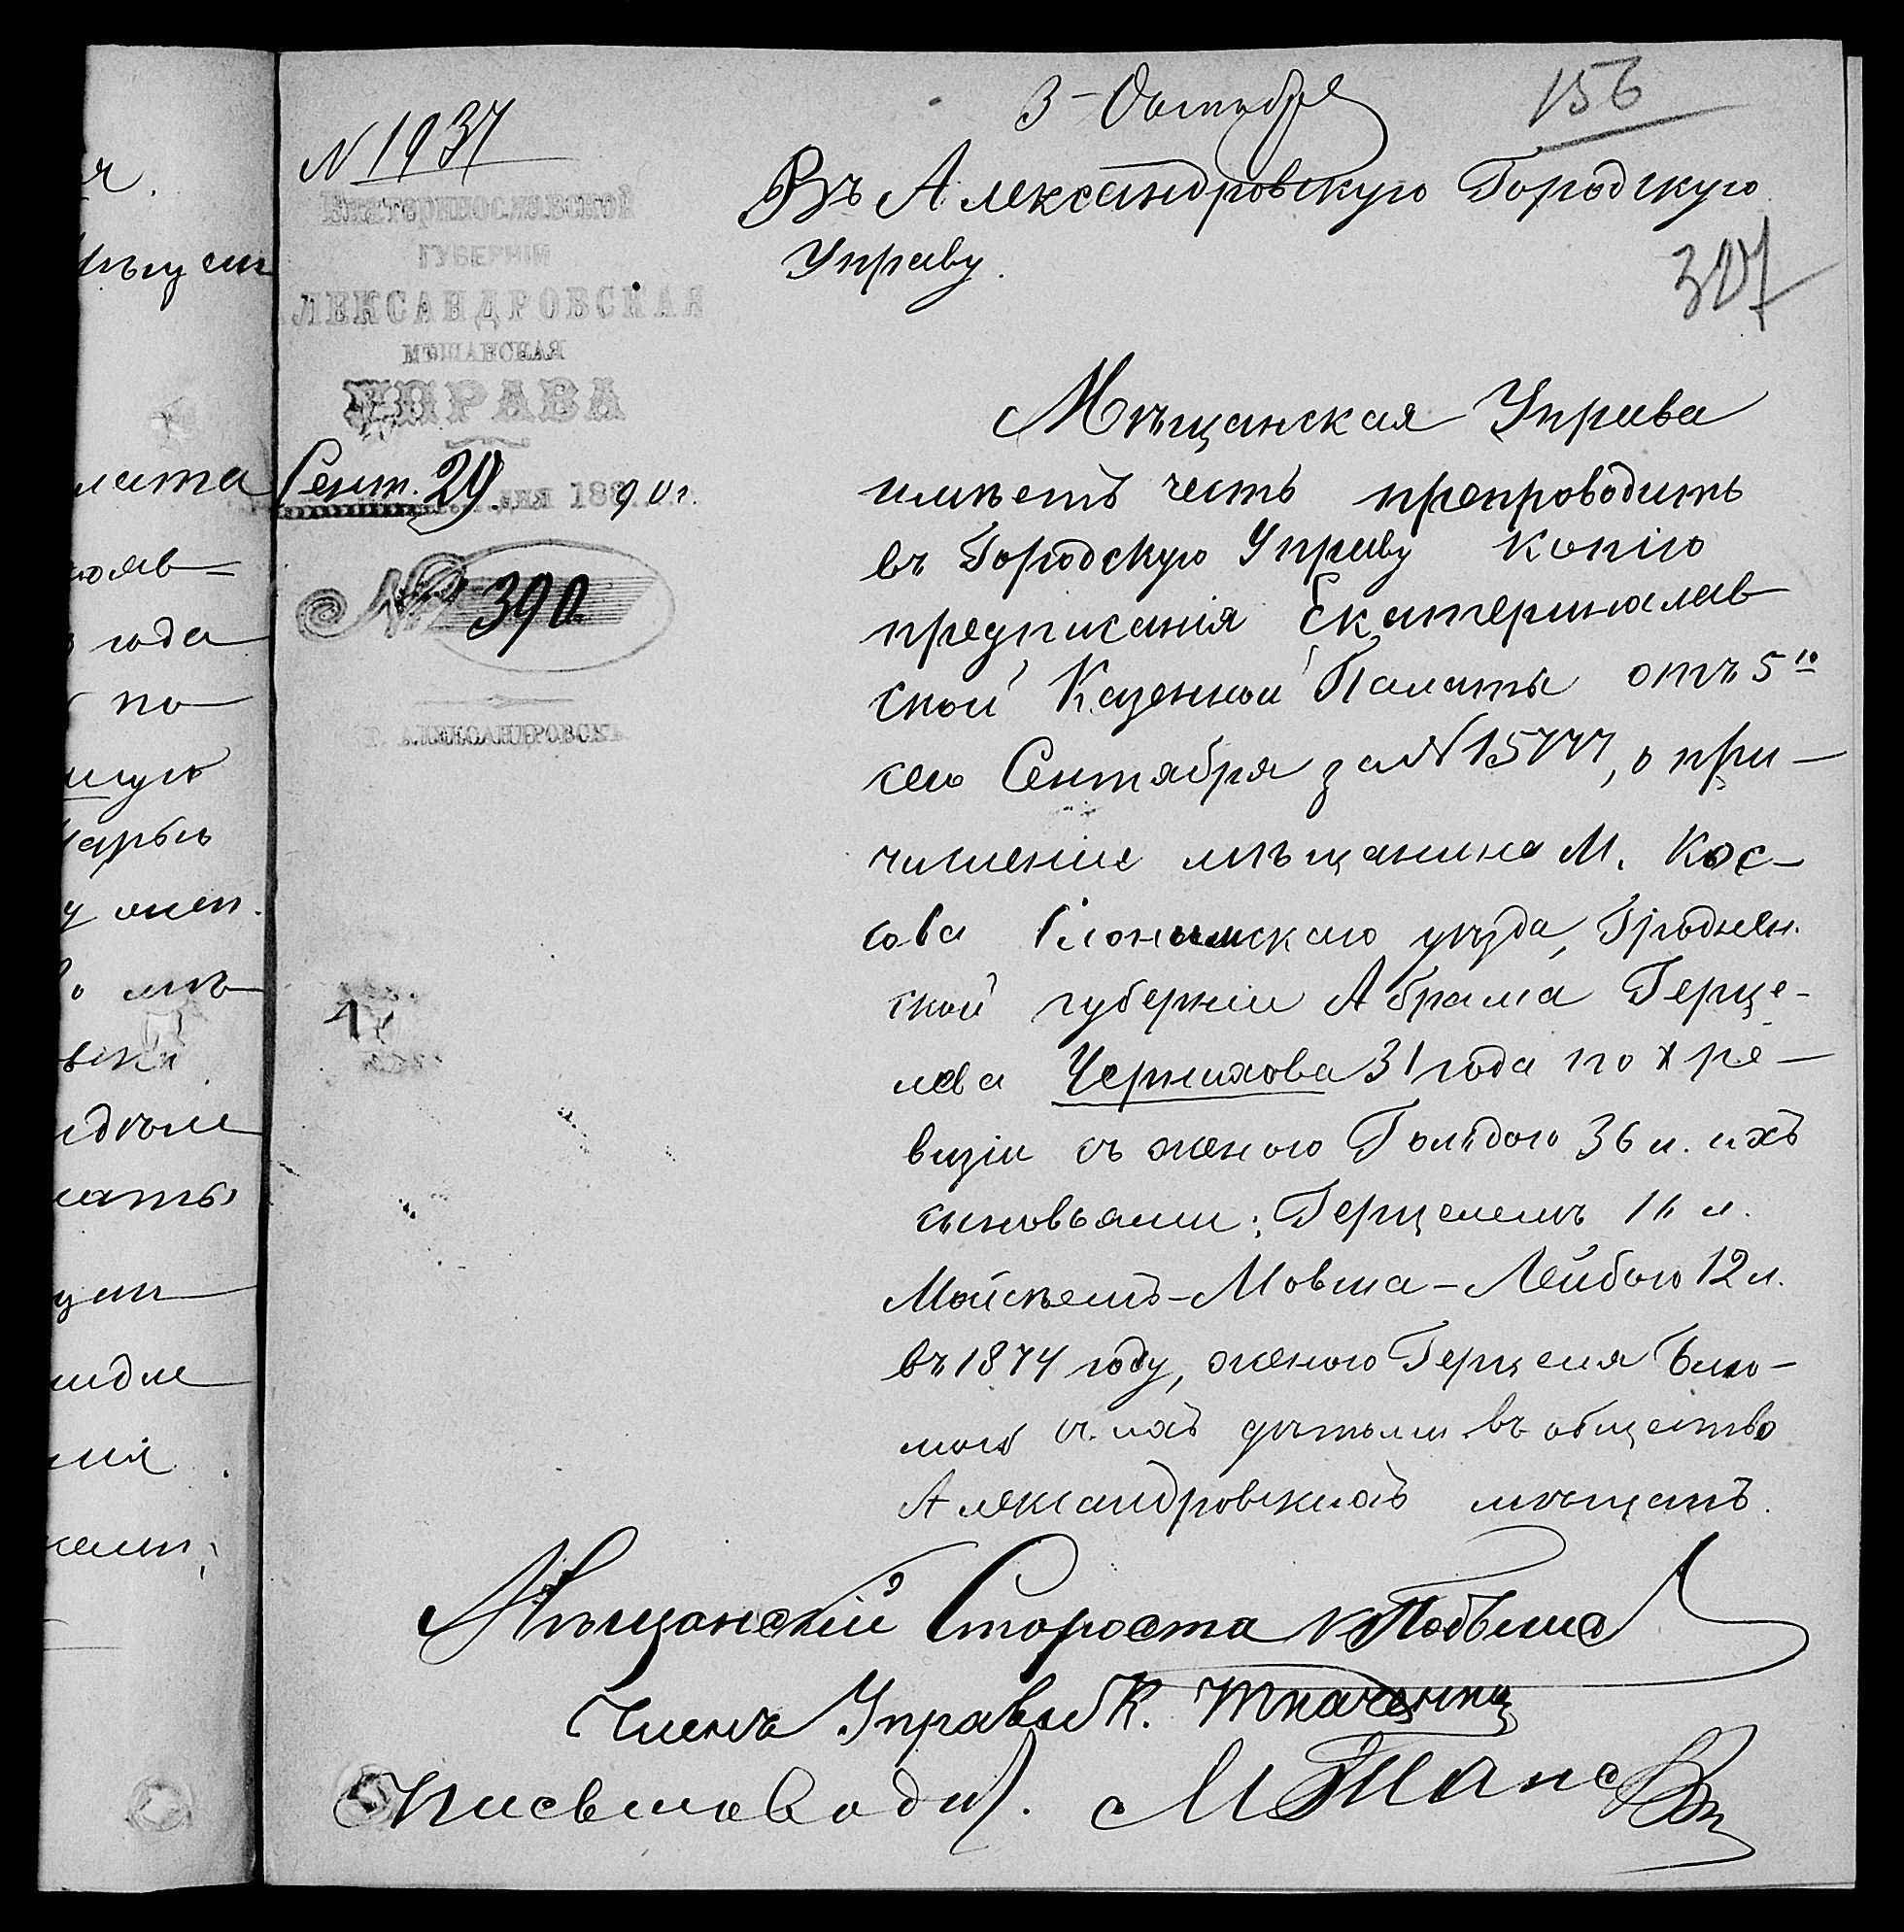 3 Октября
156
N 1937
Въ Александровскую Городскую
Управу.
307
Екатеринославской
ГУБЕРНІИ
ЛЕКСАНДРОВСКАЯ
МѢЩАНСКАЯ
УПРАВА
Сент. 29 дня 1890 г.
№ 390
Г. АЛЕКСАНДРОВСКЪ
Мѣщанская Управа
имѣетъ честь препроводить
въ Городскую Управу копію
предписанія Екатеринослав
ской Казенной Палаты отъ 5го
сего Сентября за N 15777, о при-
численіи мѣщанина м. Кос-
сова Слонимскаго уѣзда, Гроднен.
ской губерніи Абрама Герце-
лева Чернихова 31 года по X ре-
визіи съ женою Гольдою 36 л. ихъ
сыновьями: Герцелемъ 16 л.
Мойсеемъ-Мовша-Лейбою 12 л.
въ 1874 году, женою Герцеля Блю-
мою и ихъ дѣтьми въ общество
Александровскихъ мѣщанъ.
Мѣщанскій Староста
Членъ Управы К. Ткаченко
Письмовод.
года
по